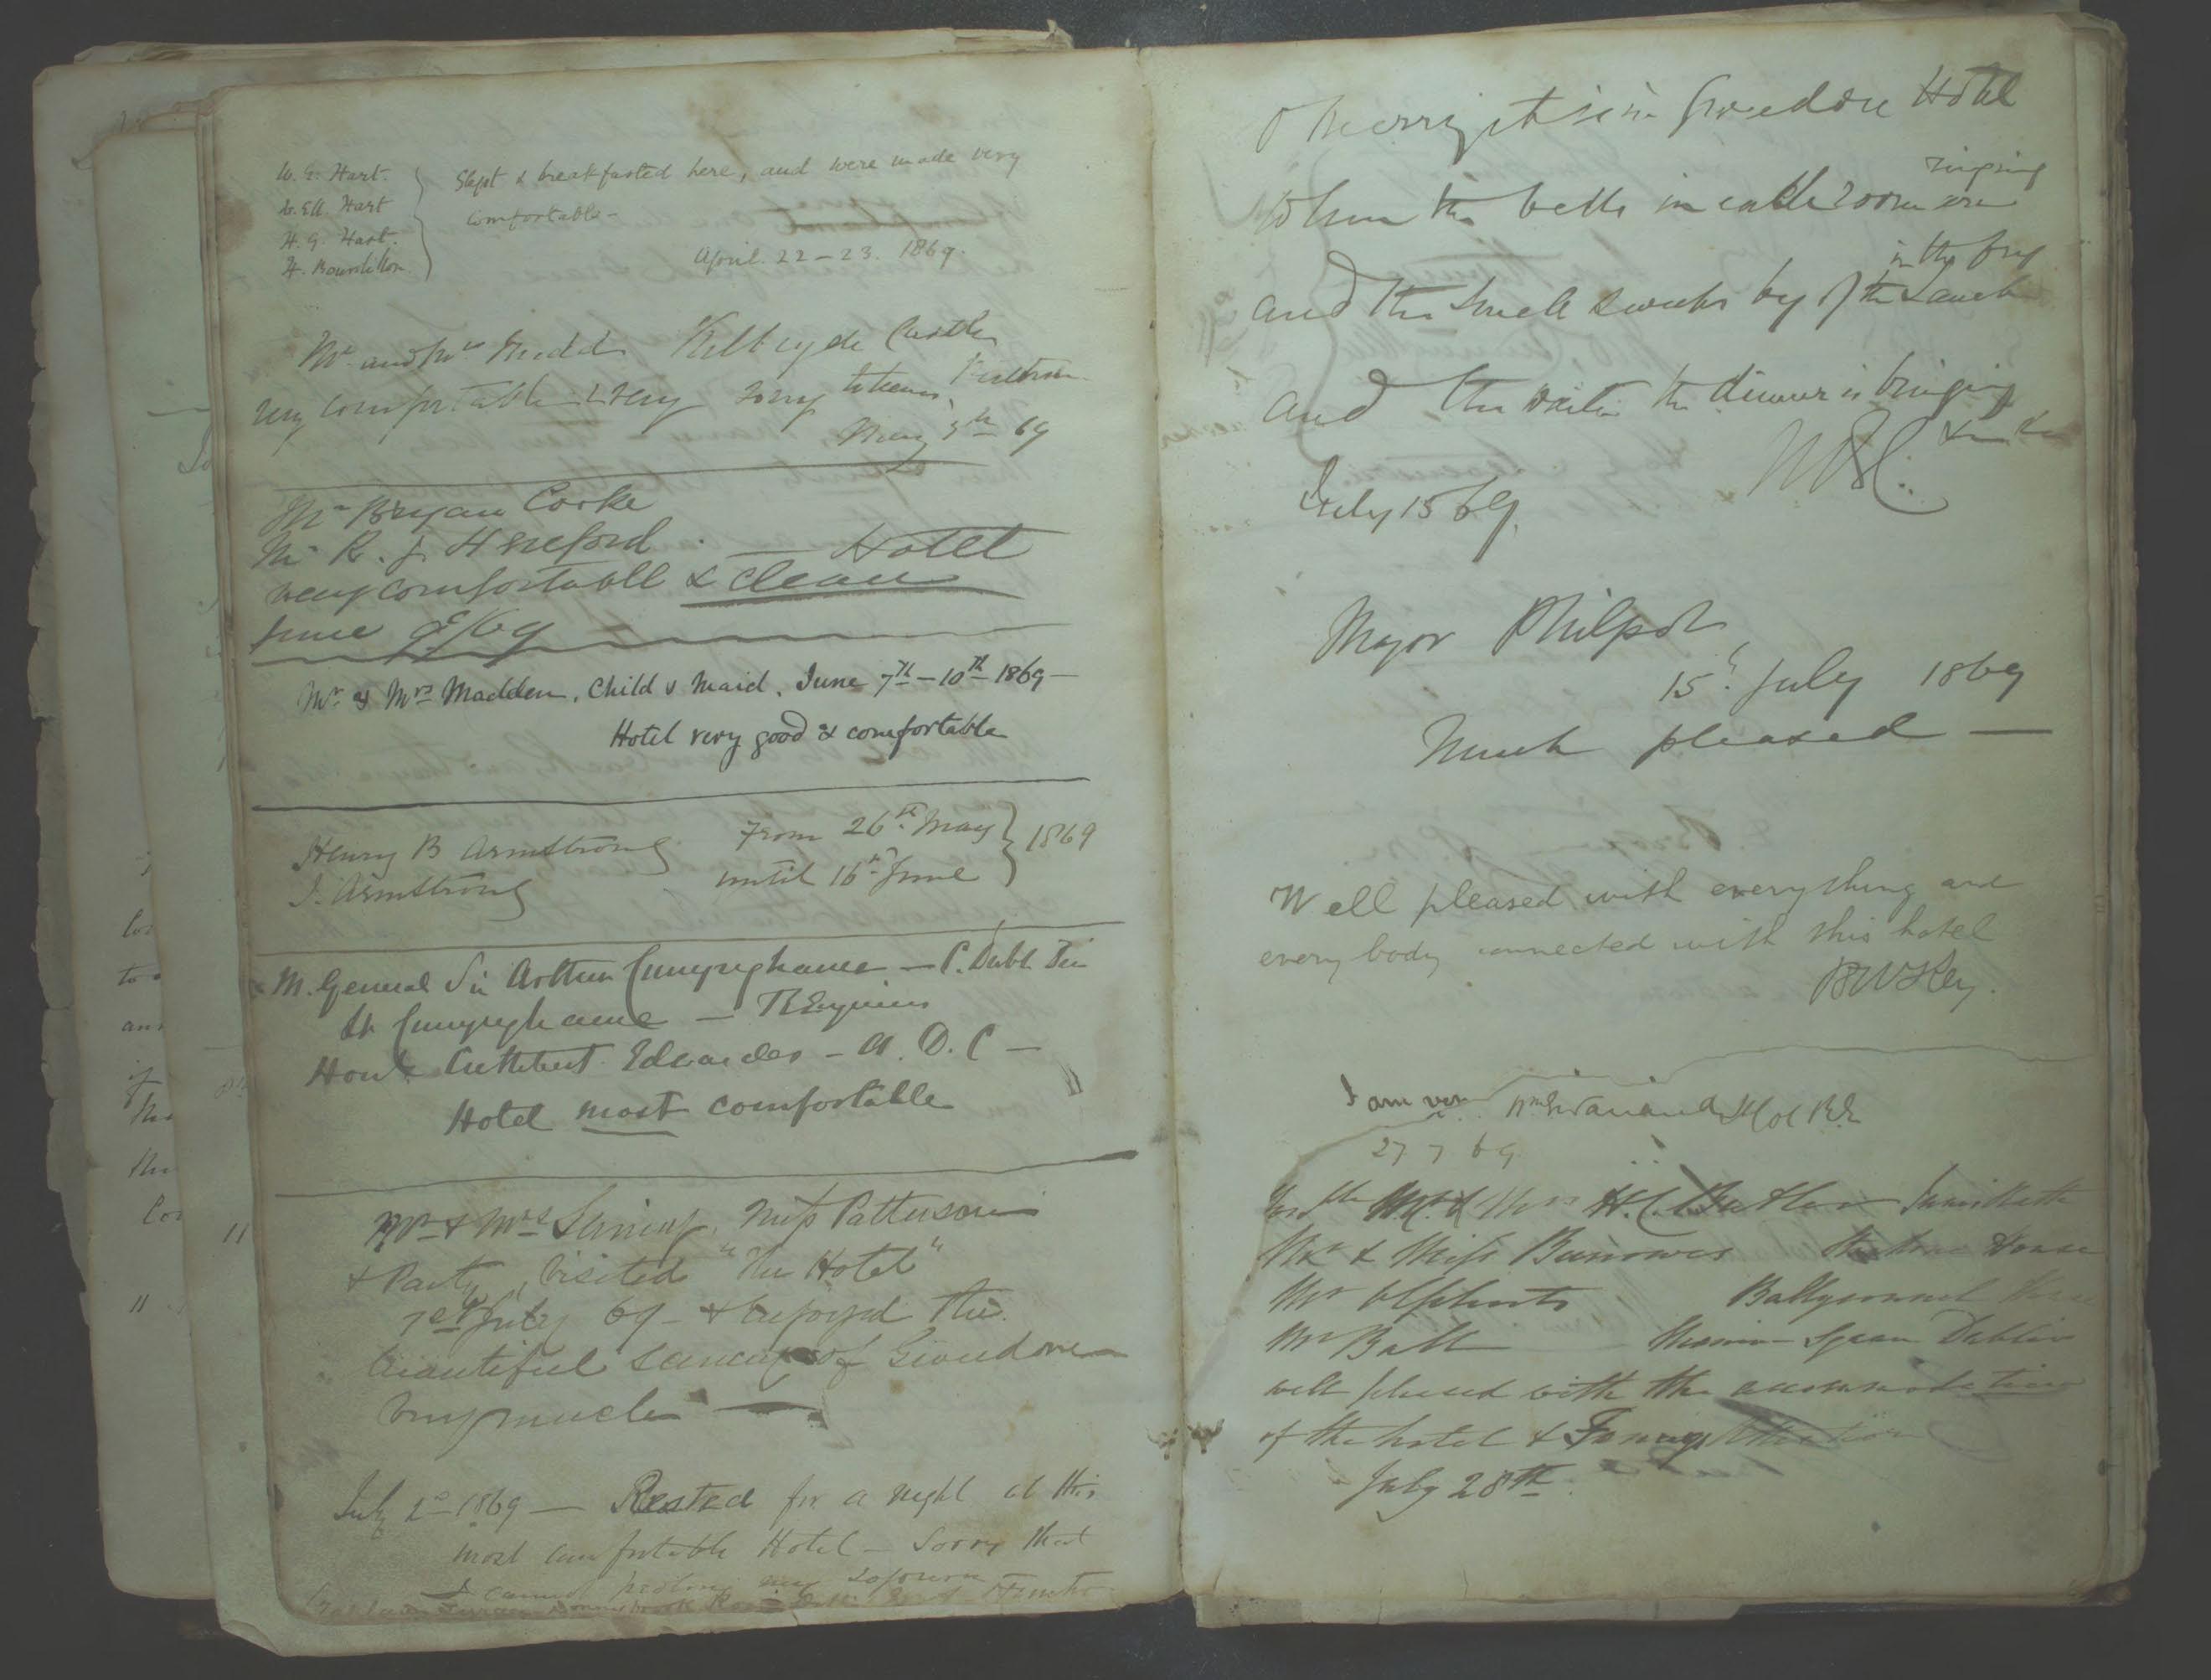 W. E. Hart.
W. Ell. Hart
H. G. Hart.
H. Bourdillon
Slept & breakfasted here, and were made very
comfortable -
April 22 - 23. 1869.
Mr and Mrs Castle
very comfortable & very sorry to leave
May 69
Mr Bryan Cooke
Mr R. J. Hereford - Hotel
very comfortable & clean
June 9/69
Mr & Mrs Madden, Child & Maid, June 7th - 10th 1869 -
Hotel very good & comfortable
Henry B Armstrong
J. Armstrong
From 26th May
until 16th June
1869
M. General Sir Arthur Cunynghame - C. Dubl Div
Cunynghame -
Honble Cuthbert Edwardes - A. D. C -
Hotel most comfortable
Mr & Mrs Miss Patterson
& Party, visited "The Hotel"
1st July 69 - & enjoyed the
beautiful scenery of Gweedore
very much -
July 2nd 1869 - Rested for a night at this
most comfortable Hotel - Sorry that
I cannot prolong my sojourn
O merry it is in Gweedore Hotel
When the bells in each room are ringing
and the smell sweeps by of the
and the waiter the dinner is bringing
July 1869.
Major Philpot
15th July 1869
Much pleased -
Well pleased with everything and
every body connected with this hotel
I am very
27 7 69
Mr & Mrs H. C.
& Miss Burrowes House
Mr Olpherts Ballyconnell House
Mr Ball Merrion Square Dublin
well pleased with the accommodation
of the hotel & Fannys attention
July 28th